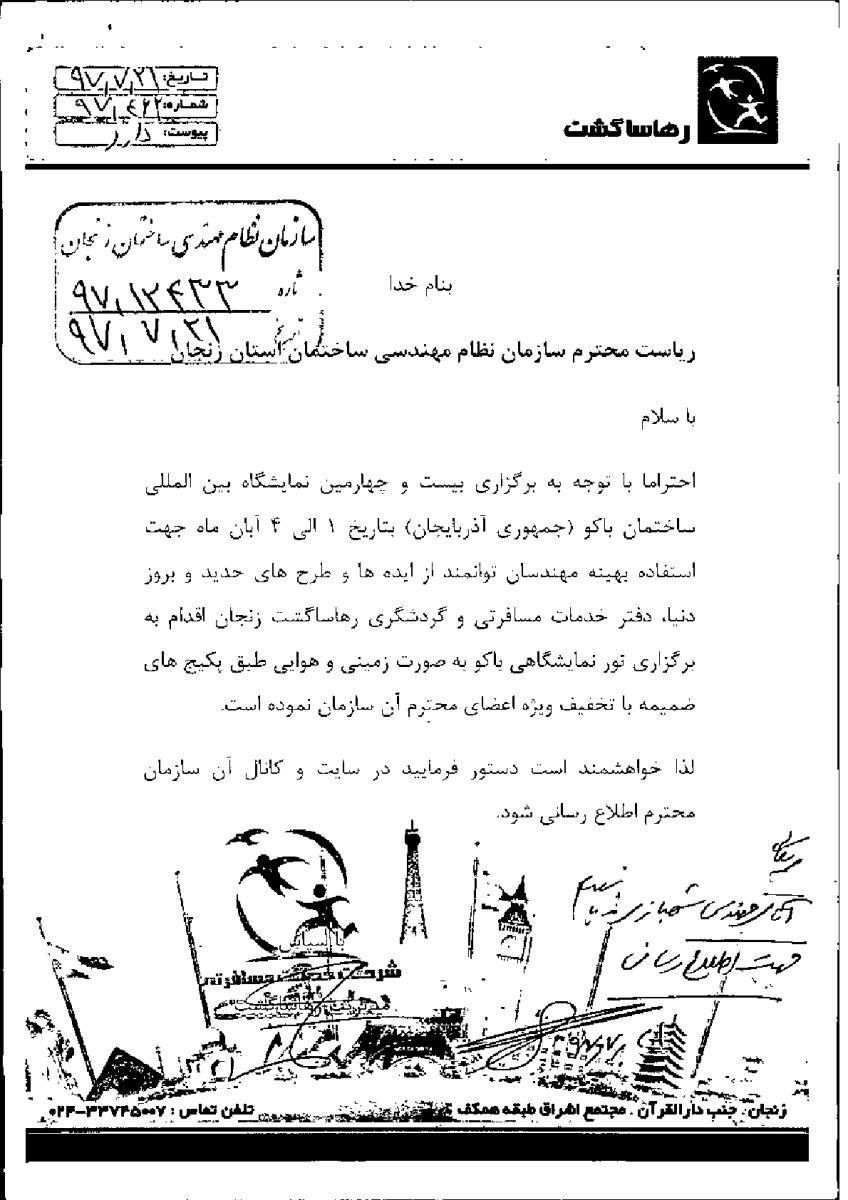 رهاساگشت
تاریخ: ۹۷٫۷٫۲۱
شماره: ۹۷٫۴۲۲
پیوست: دارد
سازمان نظام مهندسی ساختمان زنجان
شماره ۹۷٫۱۲۴۳۳
تاریخ ۹۷٫۷٫۲۱
بنام خدا
ریاست محترم سازمان نظام مهندسی ساختمان استان زنجان
با سلام
احتراما با توجه به برگزاری بیست و چهارمین نمایشگاه بین المللی
ساختمان باکو (جمهوری آذربایجان) بتاریخ ۱ الی ۴ آبان ماه جهت
استفاده بهینه مهندسان توانمند از ایده ها و طرح های حدید و بروز
دنیا، دفتر خدمات مسافرتی و گردشگری رهاساگشت زنجان اقدام به
برگزاری تور نمایشگاهی باکو به صورت زمینی و هوایی طبق پکیج های
ضمیمه با تخفیف ویژه اعضای محترم آن سازمان نموده است.
لذا خواهشمند است دستور فرمایید در سایت و کانال آن سازمان
محترم اطلاع رسانی شود.
آقای مهندس شهبازی
جهت اطلاع رسانی
شرکت خدمات مسافرتی
زنجان . جنب دارالقرآن . مجتمع اشراق طبقه همکف
تلفن تماس : ۳۳۷۴۵۰۰۷-۰۲۴